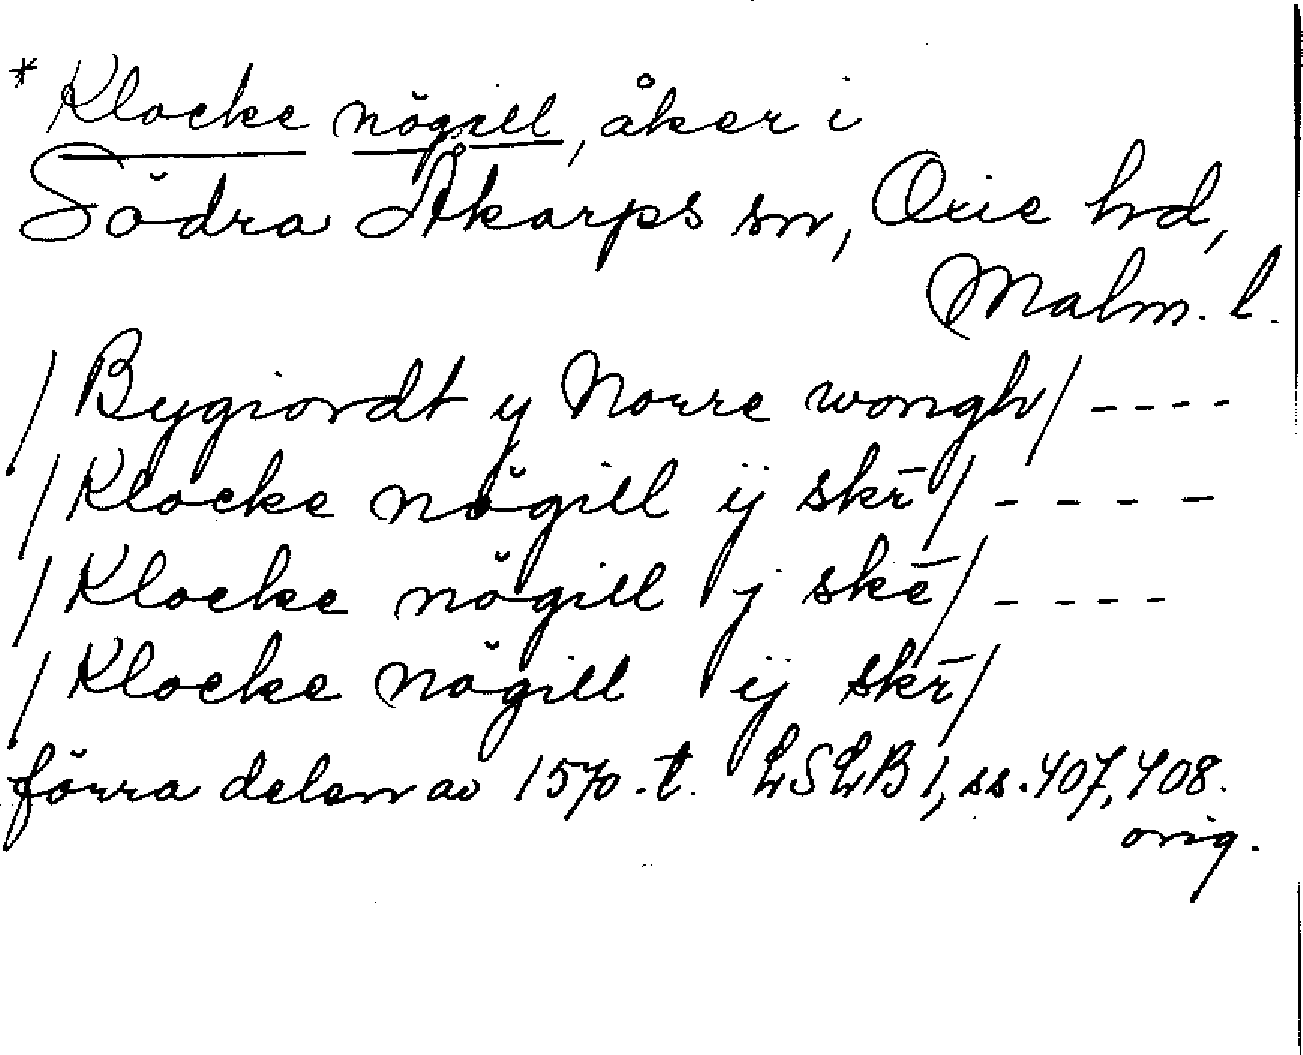 * Klocke nögill, åker i
Södra Åkarps sn, Oxie hd,
Malm. l.
/ Bygiordt y Norre wongh / ----
/ Klocke nögill ij skr̄ / - - - -
/ Klocke nögill j skē / - - - -
/ Klocke nögill ij skr̄ /
förra delen av 1570-t. LSLB 1, ss. 407, 408.
orig.